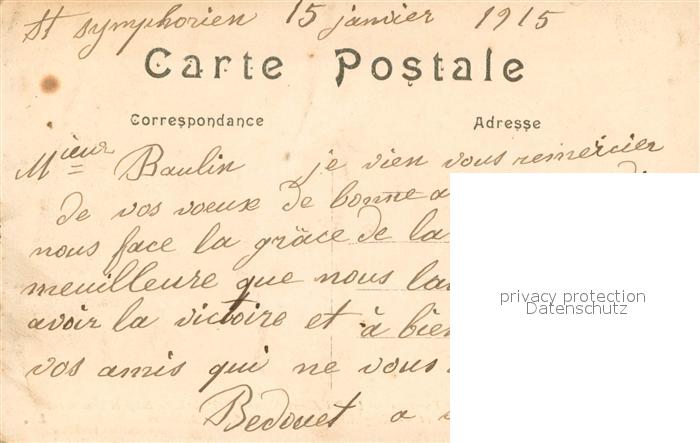 St symphorien 15 janvier 1915
Carte Postale
Correspondance Adresse
Mieur Baulin je vien vous remercier
de vos voeux de bonne a
nous face la grâce de la
meuilleure que nous l
avoir la victoire et à bien
vos amis qui ne vous
Bedouet a
privacy protection
Datenschutz